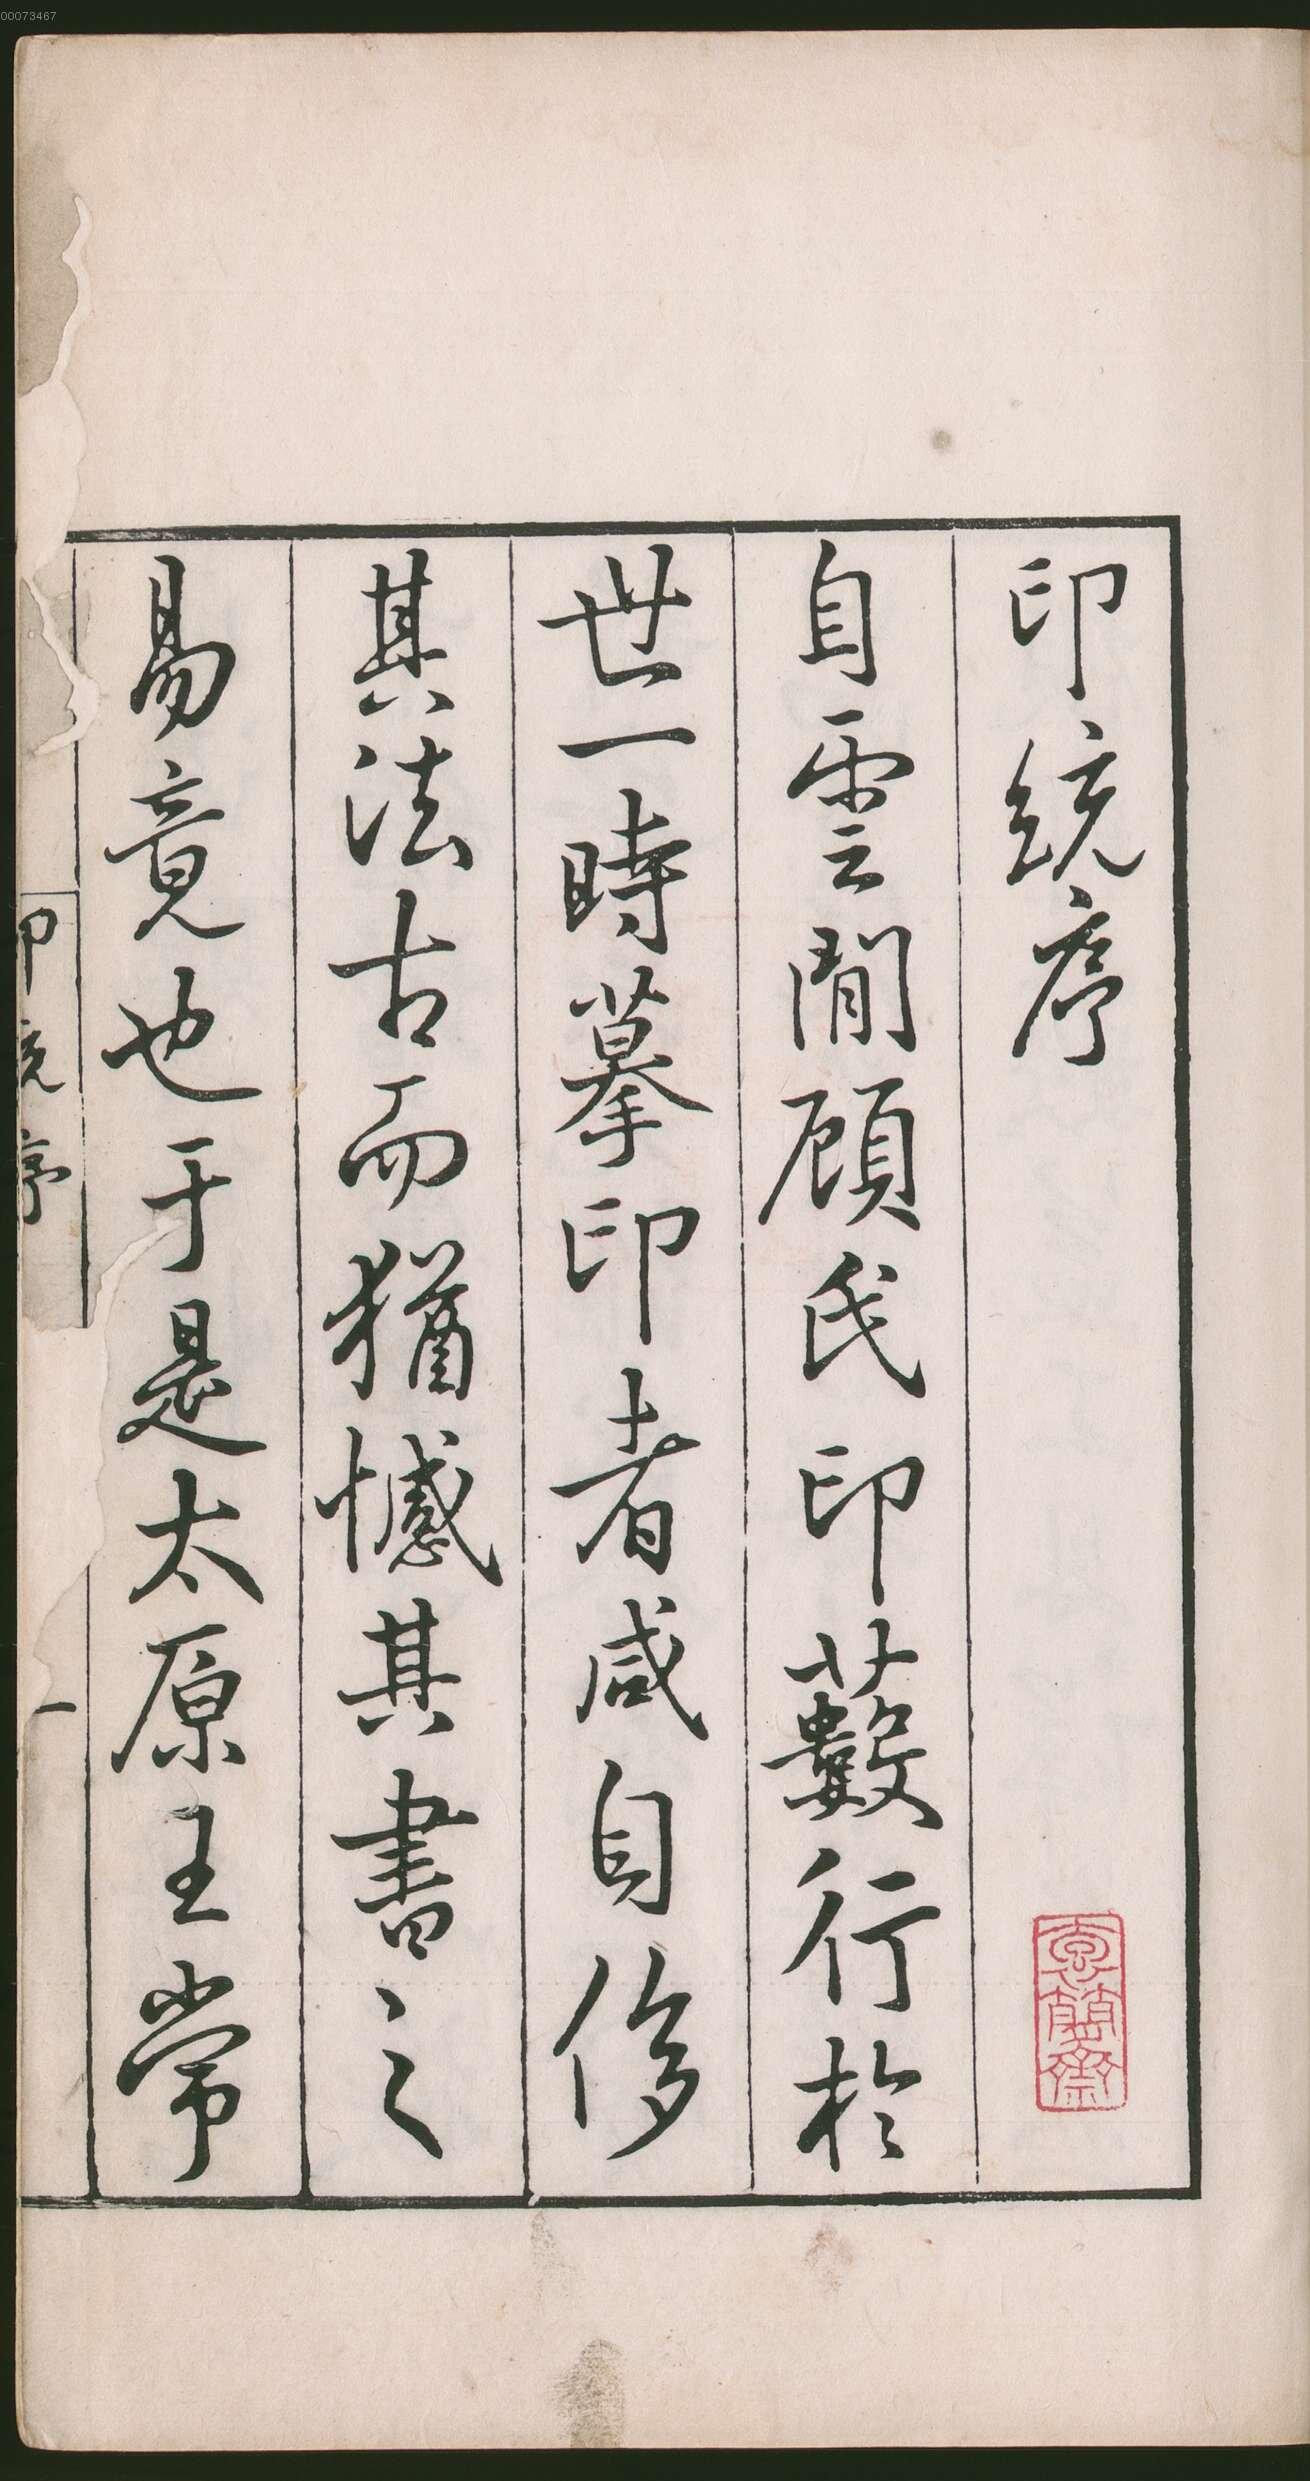 00073467
印統序
自雲間顧氏印藪行於
世一時摹印者咸自侈
其法古而猶憾其書之
易竟也于是太原王常
印統序
一